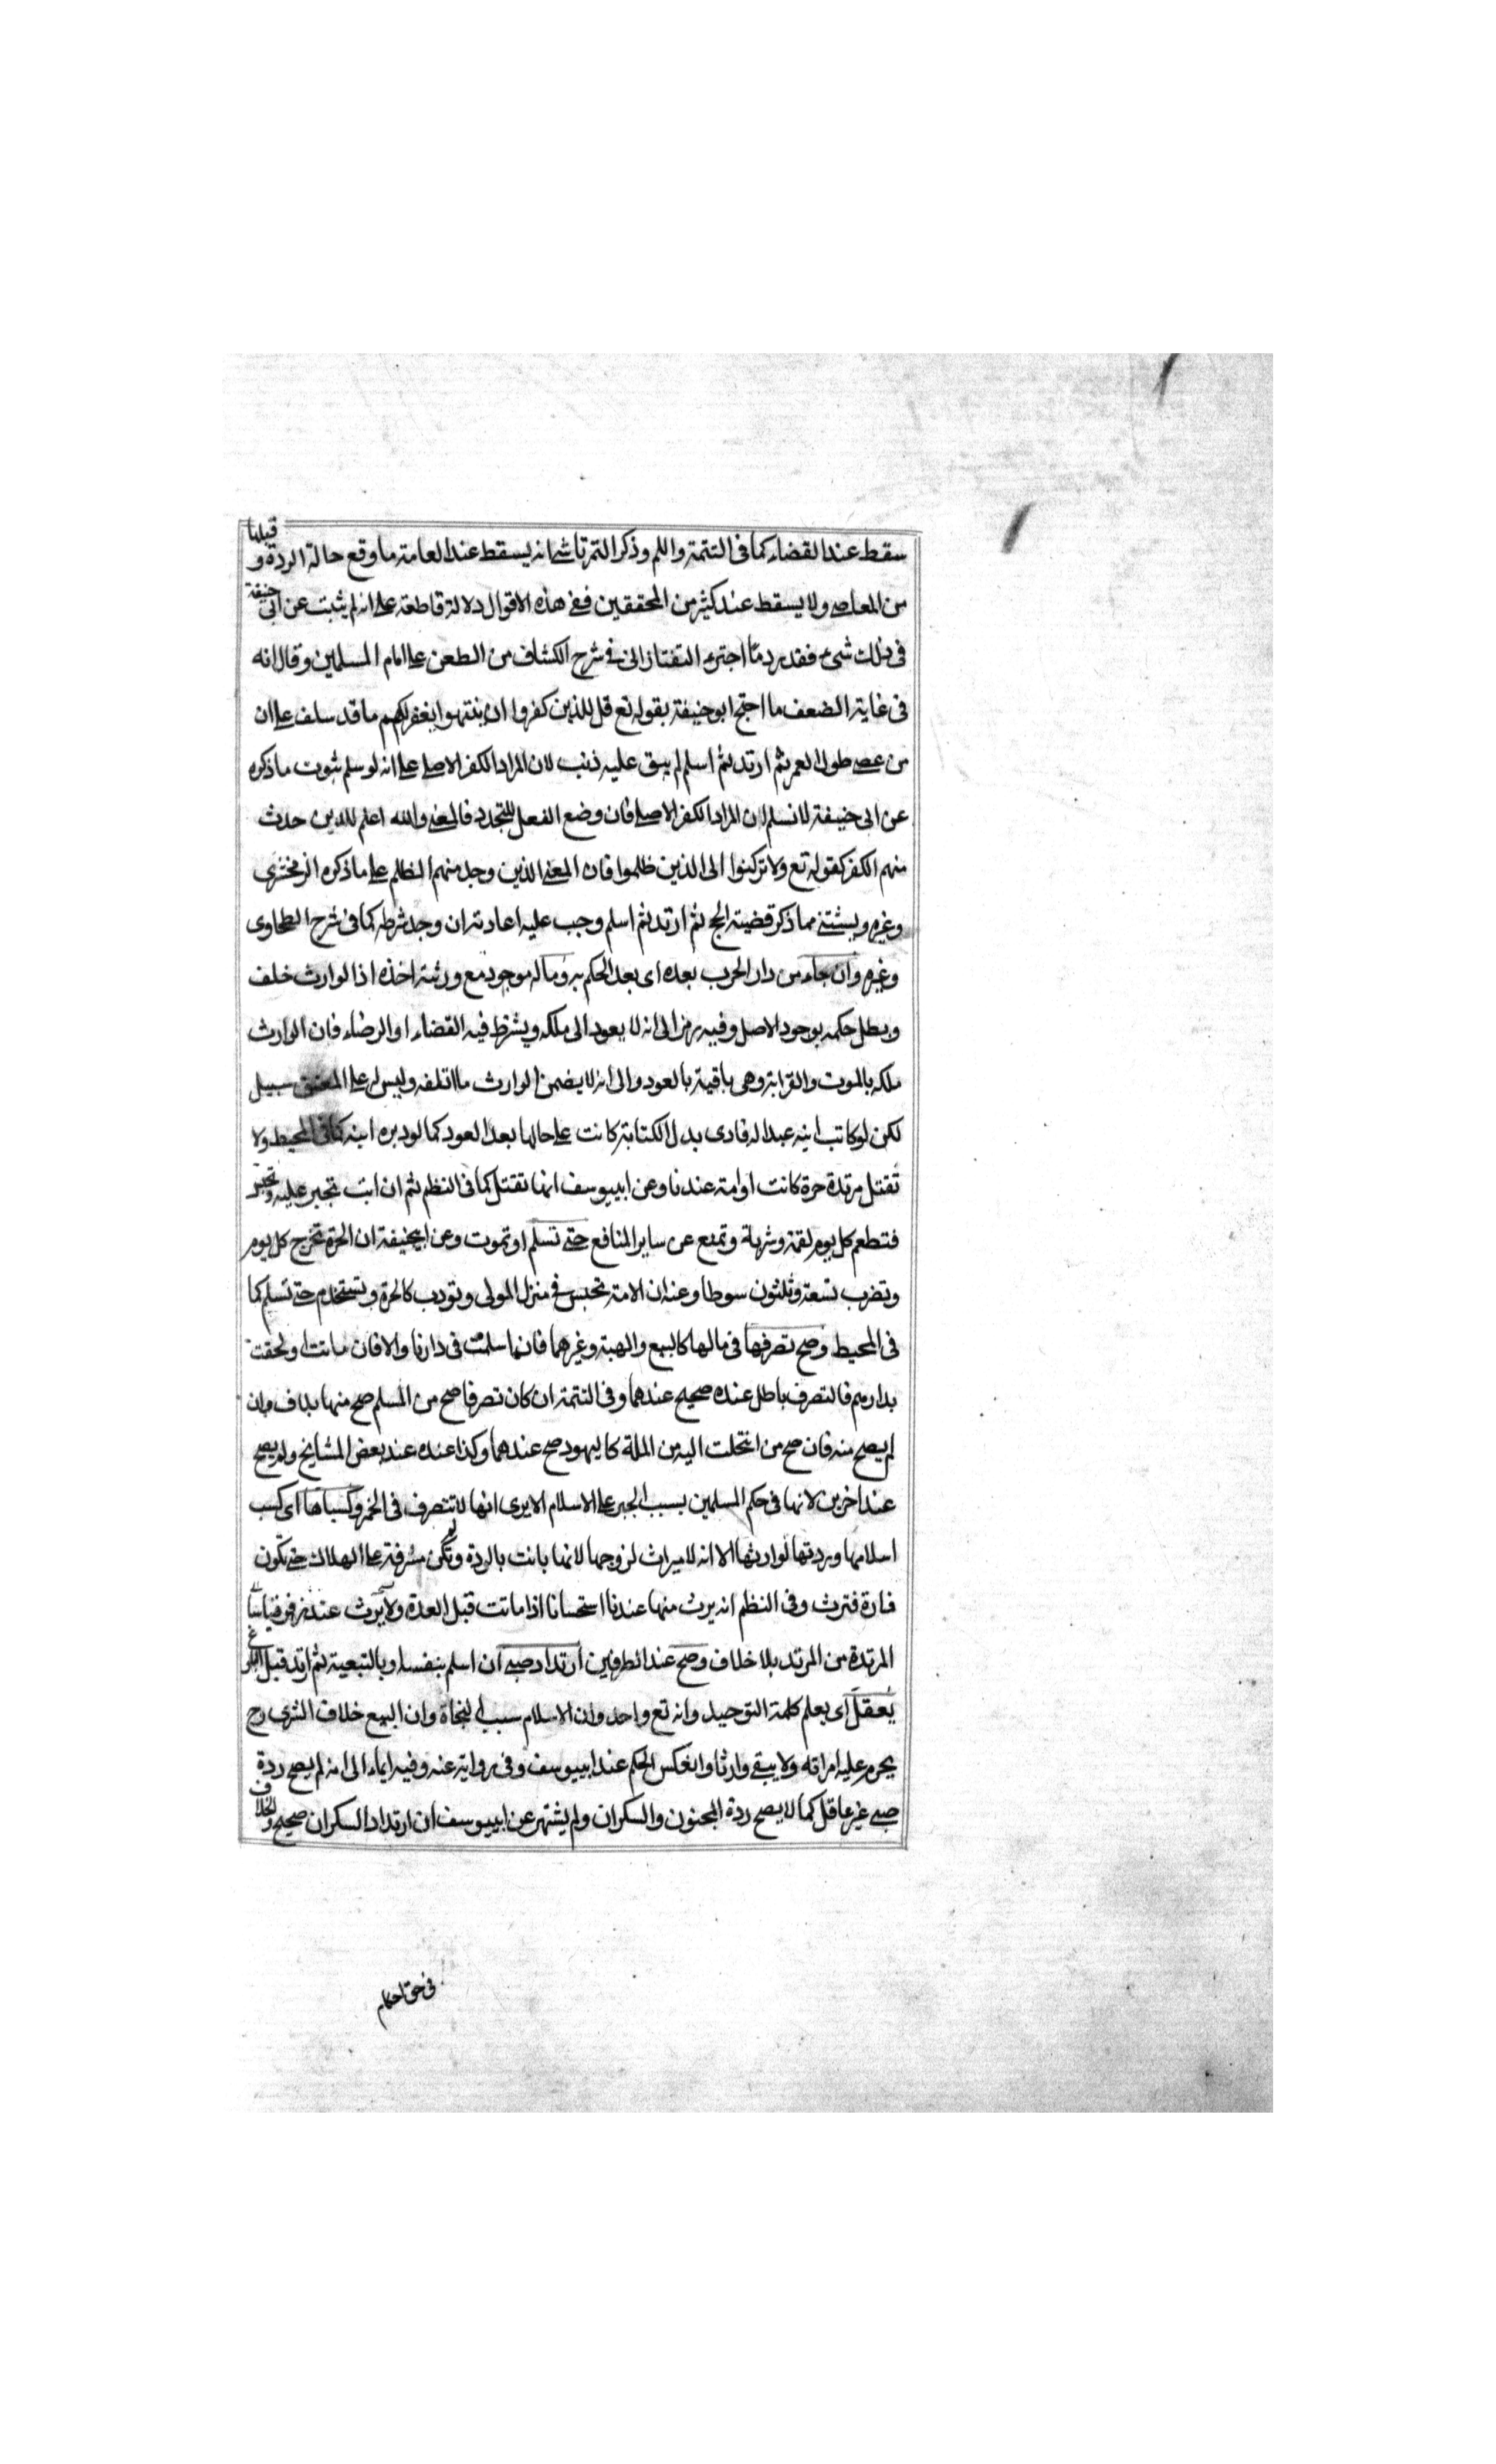 سقط عند القضاء كما فى التتمة واللم وذكر التمرتاشى انه يسقط عند العامة ما وقع حالة الردة و قبلها
من المعاصى ولا يسقط عند كثير من المحققين ففى هذه الاقوال دلالة قاطعة على انه لم يثبت عن ابى حنيفة
فى ذلك شىء فقد يرد ما اجترء التفتازانى فى شرح الكشاف من الطعن على امام المسلمين وقال انه
فى غاية الضعف ما احتج ابو حنيفة بقوله تع قل للذين كفروا ان ينتهوا يغفر لهم ما قد سلف على ان
من عصى طول العمر ثم ارتد ثم اسلم لم يبق عليه ذنب لان المراد الكفر الاصلى على انه لو سلم ثبوت ما ذكره
عن ابى حنيفة لا نسلم ان المراد الكفر الاصلى فان وضع الفعل للتجدد فالمعنى والله اعلم للذين حدث
منهم الكفر كقوله تع ولا تركنوا الى الذين ظلموا فان المعنى الذين وجد منهم الظلم على ما ذكره الزمخشرى
وغيره ويستثنى مما ذكر قضية الحج ثم ارتد ثم اسلم وجب عليه اعادته ان وجد شرطه كما فى شرح الطحاوى
وغيره وان جاء من دار الحرب بعده اى بعد الحكم به وماله موجود مع ورثته اخذه اذ الوارث خلف
وبطل حكمه بوجود الاصل وفيه رمز الى انه لا يعود الى ملكه ويشترط فيه القضاء او الرضاء فان الوارث
ملكه بالموت والقرابة وهى باقية بالعود والى انه لا يضمن الوارث ما اتلفه وليس له على المعتق سبيل
لكن لو كاتب ابنه عبدا له فادى بدل الكتابة كانت على حالها بعد العود كما لو دبره ابنه كما فى المحيط ولا
تقتل مرتدة حرة كانت او امة عندنا وعن ابييوسف انها تقتل كما فى النظم ثم ان ابت تجبر عليه وتحبس
فتطعم كل يوم لقمة وشربة وتمنع عن ساير المنافع حتى تسلم او تموت وعن ابيحنيفة ان الحرة تخرج كل يوم
وتضرب تسعة وثلثون سوطا وعنه ان الامة تحبس فى منزل المولى وتودب كالحرة وتستخدم حتى تسلم كما
فى المحيط وصح تصرفها فى مالها كالبيع والهبة وغيرهما فانها سلمت فى دارنا والا فان ماتت او لحقت
بدارهم فالتصرف باطل عنده صحيح عندهما وفى التتمة ان كان تصرفا صح من المسلم صح منها بلا ف وان
لم يصح منه فان صح من انتحلت اليه من الملة كاليهود صح عندهما وكذا عنده عند بعض المشايخ ولم يصح
عند اخرين لانها فى حكم المسلمين بسبب الجبر على الاسلام الا يرى انها لا تتصرف فى الخمر وكسباها اى كسب
اسلامها وردتها لوارثها الا انه لا ميراث لزوجها لانها بانت بالردة ولم تكن مشرفة على الهلاك حتى تكون
فارة فترث وفى النظم انه يرث منها عندنا استحسانا اذا ماتت قبل العدة ولا يرث عند زفر قياسا
المرتدة من المرتد بلا خلاف وصح عند الطرفين ارتداد صبى ان اسلم بنفسه او بالتبعية ثم ارتد قبل البلوغ
يعقل اى يعلم كلمة التوحيد وانه تع واحد وان الاسلام سبب النجاة وان البيع خلاف الشرى وح
يحرم عليه امراته ولا يبقى وارثا وانعكس الحكم عند ابييوسف وفى رواية عنه وفيه ايماء الى انه لم يصح ردة
صبى غير عاقل كما لا يصح ردة المجنون والسكران ولم يشتهر عن ابييوسف ان ارتداد السكران صحيح والخلاف
فى حق احكام